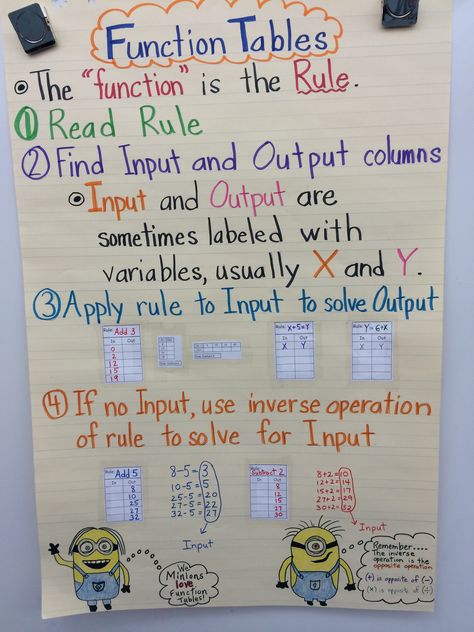 Function Tables
The "function" is the Rule.
① Read Rule
② Find Input and Output columns
Input and Output are
sometimes labeled with
variables, usually X and Y.
③ Apply rule to Input to solve Output
Rule: Add 3
In Out
0
2
12
15
19
Rule: X+5=Y
In Out
X Y
Rule: Y=6+X
In Out
X Y
④ If no Input, use inverse operation
of rule to solve for Input
Rule: Add 5
In Out
8
10
25
27
32
8-5=3
10-5=5
25-5=20
27-5=22
32-5=27
Input
Rule: Subtract 2
In Out
8
12
15
27
30
8+2=10
12+2=14
15+2=17
27+2=29
30+2=32
Input
We
Minions
love
Function
Tables!
Remember....
The inverse
operation is the
opposite operation
(+) is opposite of (-)
(×) is opposite of (÷)